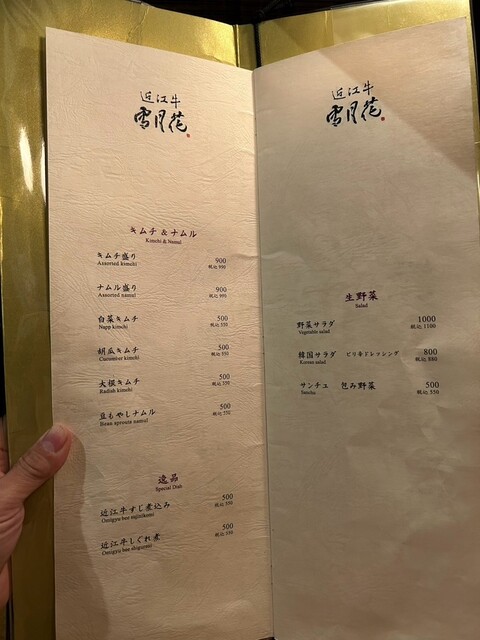 近江牛
雪月花
キムチ & ナムル
Kimchi & Namul
キムチ盛り 900
Assorted kimchi 税込 990
ナムル盛り 900
Assorted namul 税込 990
白菜キムチ 500
Napp kimchi 税込 550
胡瓜キムチ 500
Cucumber kimchi 税込 550
大根キムチ 500
Radish kimchi 税込 550
豆もやしナムル 500
Bean sprouts namul 税込 550
逸品
Special Dish
近江牛すじ煮込み 500
Omigyu bee sujinikomi 税込 550
近江牛しぐれ煮 500
Omigyu bee shigureni 税込 550
近江牛
雪月花
生野菜
Salad
野菜サラダ 1000
Vegetable salad 税込 1100
韓国サラダ ピリ辛ドレッシング 800
Korean salad 税込 880
サンチュ 包み野菜 500
Sanchu 税込 550